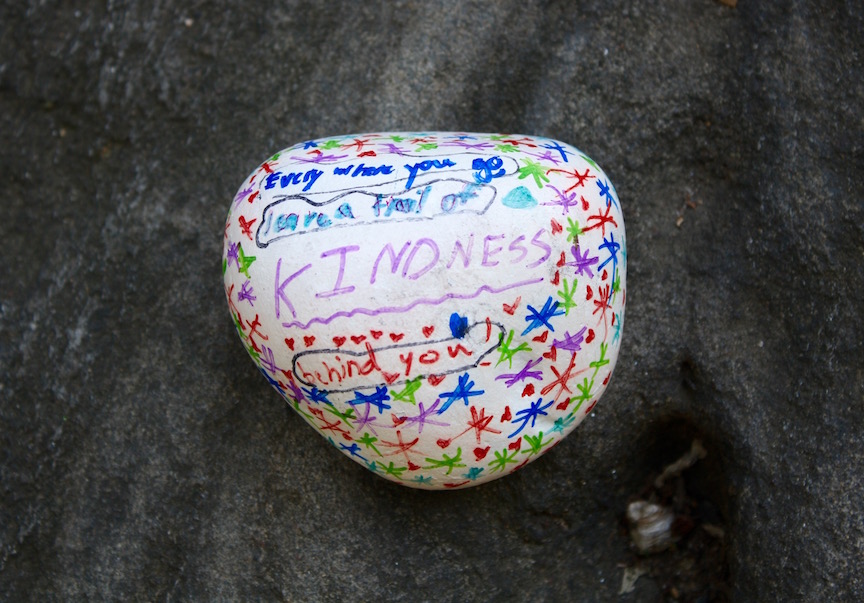 Every where you go
leave a trail of
KINDNESS
behind you!